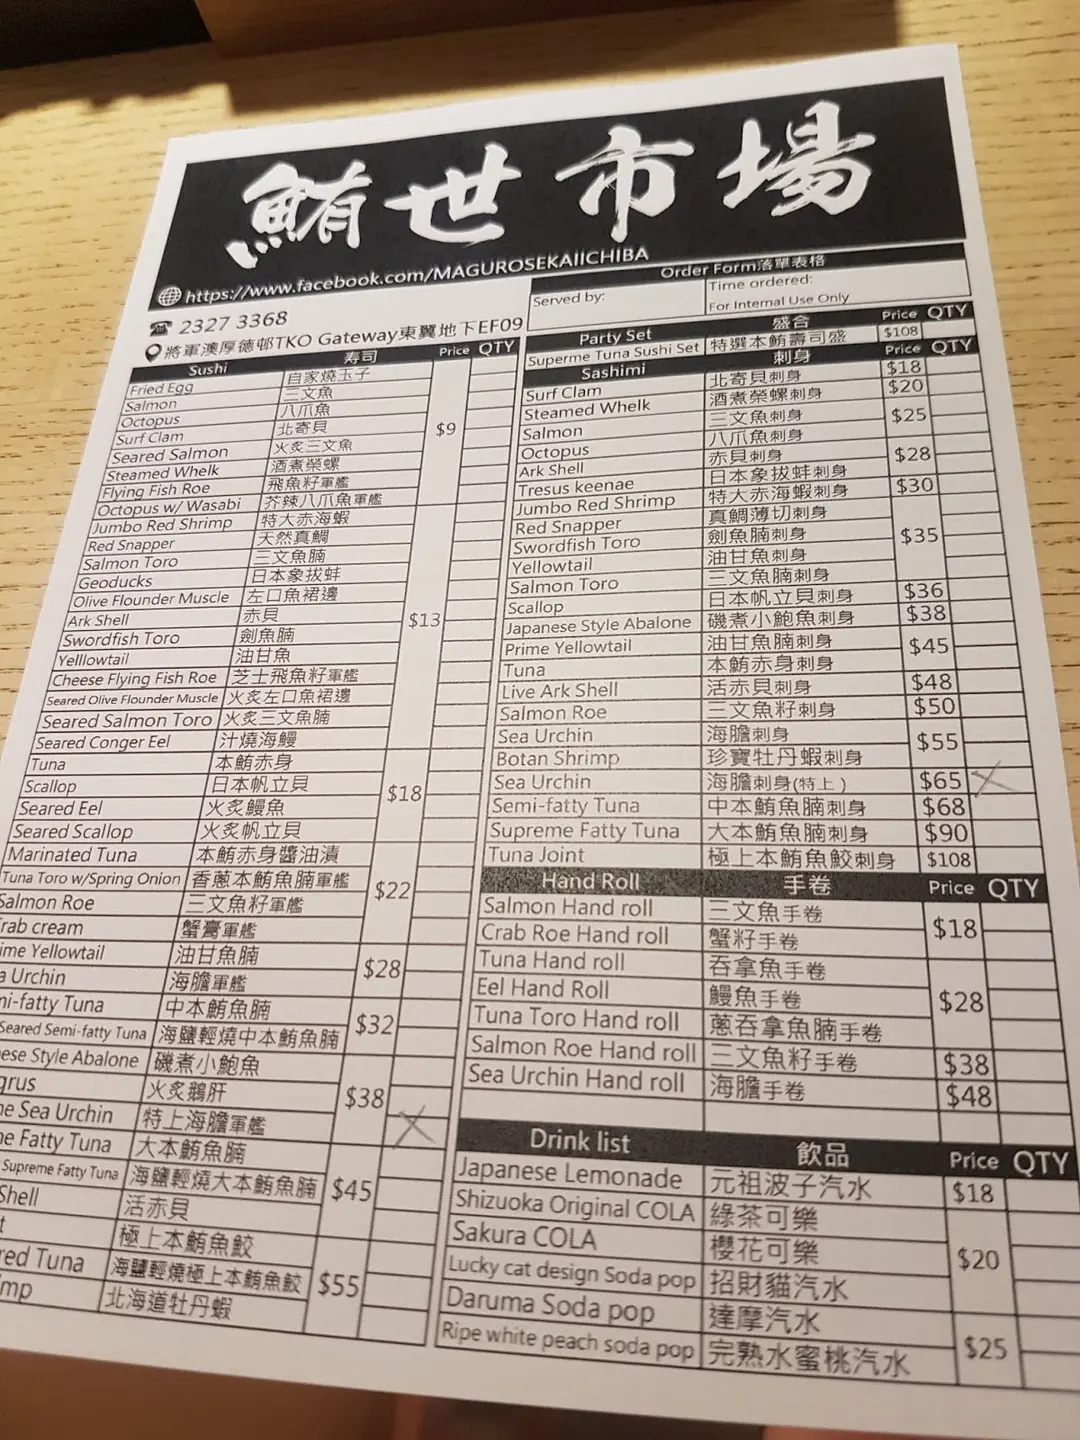 鮪世市場
https://www.facebook.com/MAGUROSEKAIICHIBA
2327 3368
將軍澳厚德邨TKO Gateway東翼地下EF09
Order Form落單表格
Served by:
Time ordered:
For Internal Use Only
Sushi 寿司 Price QTY
Fried Egg 自家燒玉子
Salmon 三文魚
Octopus 八爪魚
Surf Clam 北寄貝 $9
Seared Salmon 火炙三文魚
Steamed Whelk 酒煮榮螺
Flying Fish Roe 飛魚籽軍艦
Octopus w/ Wasabi 芥辣八爪魚軍艦
Jumbo Red Shrimp 特大赤海蝦
Red Snapper 天然真鯛
Salmon Toro 三文魚腩
Geoducks 日本象拔蚌
Olive Flounder Muscle 左口魚裙邊
Ark Shell 赤貝 $13
Swordfish Toro 劍魚腩
Yelllowtail 油甘魚
Cheese Flying Fish Roe 芝士飛魚籽軍艦
Seared Olive Flounder Muscle 火炙左口魚裙邊
Seared Salmon Toro 火炙三文魚腩
Seared Conger Eel 汁燒海鰻
Tuna 本鮪赤身
Scallop 日本帆立貝 $18
Seared Eel 火炙鰻魚
Seared Scallop 火炙帆立貝
Marinated Tuna 本鮪赤身醬油漬
Tuna Toro w/Spring Onion 香蔥本鮪魚腩軍艦 $22
Salmon Roe 三文魚籽軍艦
rab cream 蟹膏軍艦
ime Yellowtail 油甘魚腩 $28
a Urchin 海膽軍艦
mi-fatty Tuna 中本鮪魚腩 $32
Seared Semi-fatty Tuna 海鹽輕燒中本鮪魚腩
ese Style Abalone 磯煮小鮑魚
grus 火炙鵝肝 $38
ne Sea Urchin 特上海膽軍艦
ne Fatty Tuna 大本鮪魚腩
Supreme Fatty Tuna 海鹽輕燒大本鮪魚腩 $45
Shell 活赤貝
t 極上本鮪魚鮫
red Tuna 海鹽輕燒極上本鮪魚鮫 $55
mp 北海道牡丹蝦
Party Set 盛合 Price QTY
Superme Tuna Sushi Set 特選本鮪壽司盛 $108
Sashimi 刺身 Price QTY
Surf Clam 北寄貝刺身 $18
Steamed Whelk 酒煮榮螺刺身 $20
Salmon 三文魚刺身 $25
Octopus 八爪魚刺身
Ark Shell 赤貝刺身 $28
Tresus keenae 日本象拔蚌刺身
Jumbo Red Shrimp 特大赤海蝦刺身 $30
Red Snapper 真鯛薄切刺身
Swordfish Toro 劍魚腩刺身 $35
Yellowtail 油甘魚刺身
Salmon Toro 三文魚腩刺身
Scallop 日本帆立貝刺身 $36
Japanese Style Abalone 磯煮小鮑魚刺身 $38
Prime Yellowtail 油甘魚腩刺身 $45
Tuna 本鮪赤身刺身
Live Ark Shell 活赤貝刺身 $48
Salmon Roe 三文魚籽刺身 $50
Sea Urchin 海膽刺身 $55
Botan Shrimp 珍寶牡丹蝦刺身
Sea Urchin 海膽刺身(特上) $65
Semi-fatty Tuna 中本鮪魚腩刺身 $68
Supreme Fatty Tuna 大本鮪魚腩刺身 $90
Tuna Joint 極上本鮪魚鮫刺身 $108
Hand Roll 手卷 Price QTY
Salmon Hand roll 三文魚手卷 $18
Crab Roe Hand roll 蟹籽手卷
Tuna Hand roll 吞拿魚手卷
Eel Hand Roll 鰻魚手卷 $28
Tuna Toro Hand roll 蔥吞拿魚腩手卷
Salmon Roe Hand roll 三文魚籽手卷 $38
Sea Urchin Hand roll 海膽手卷 $48
Drink list 飲品 Price QTY
Japanese Lemonade 元祖波子汽水 $18
Shizuoka Original COLA 綠茶可樂
Sakura COLA 櫻花可樂 $20
Lucky cat design Soda pop 招財貓汽水
Daruma Soda pop 達摩汽水 $25
Ripe white peach soda pop 完熟水蜜桃汽水